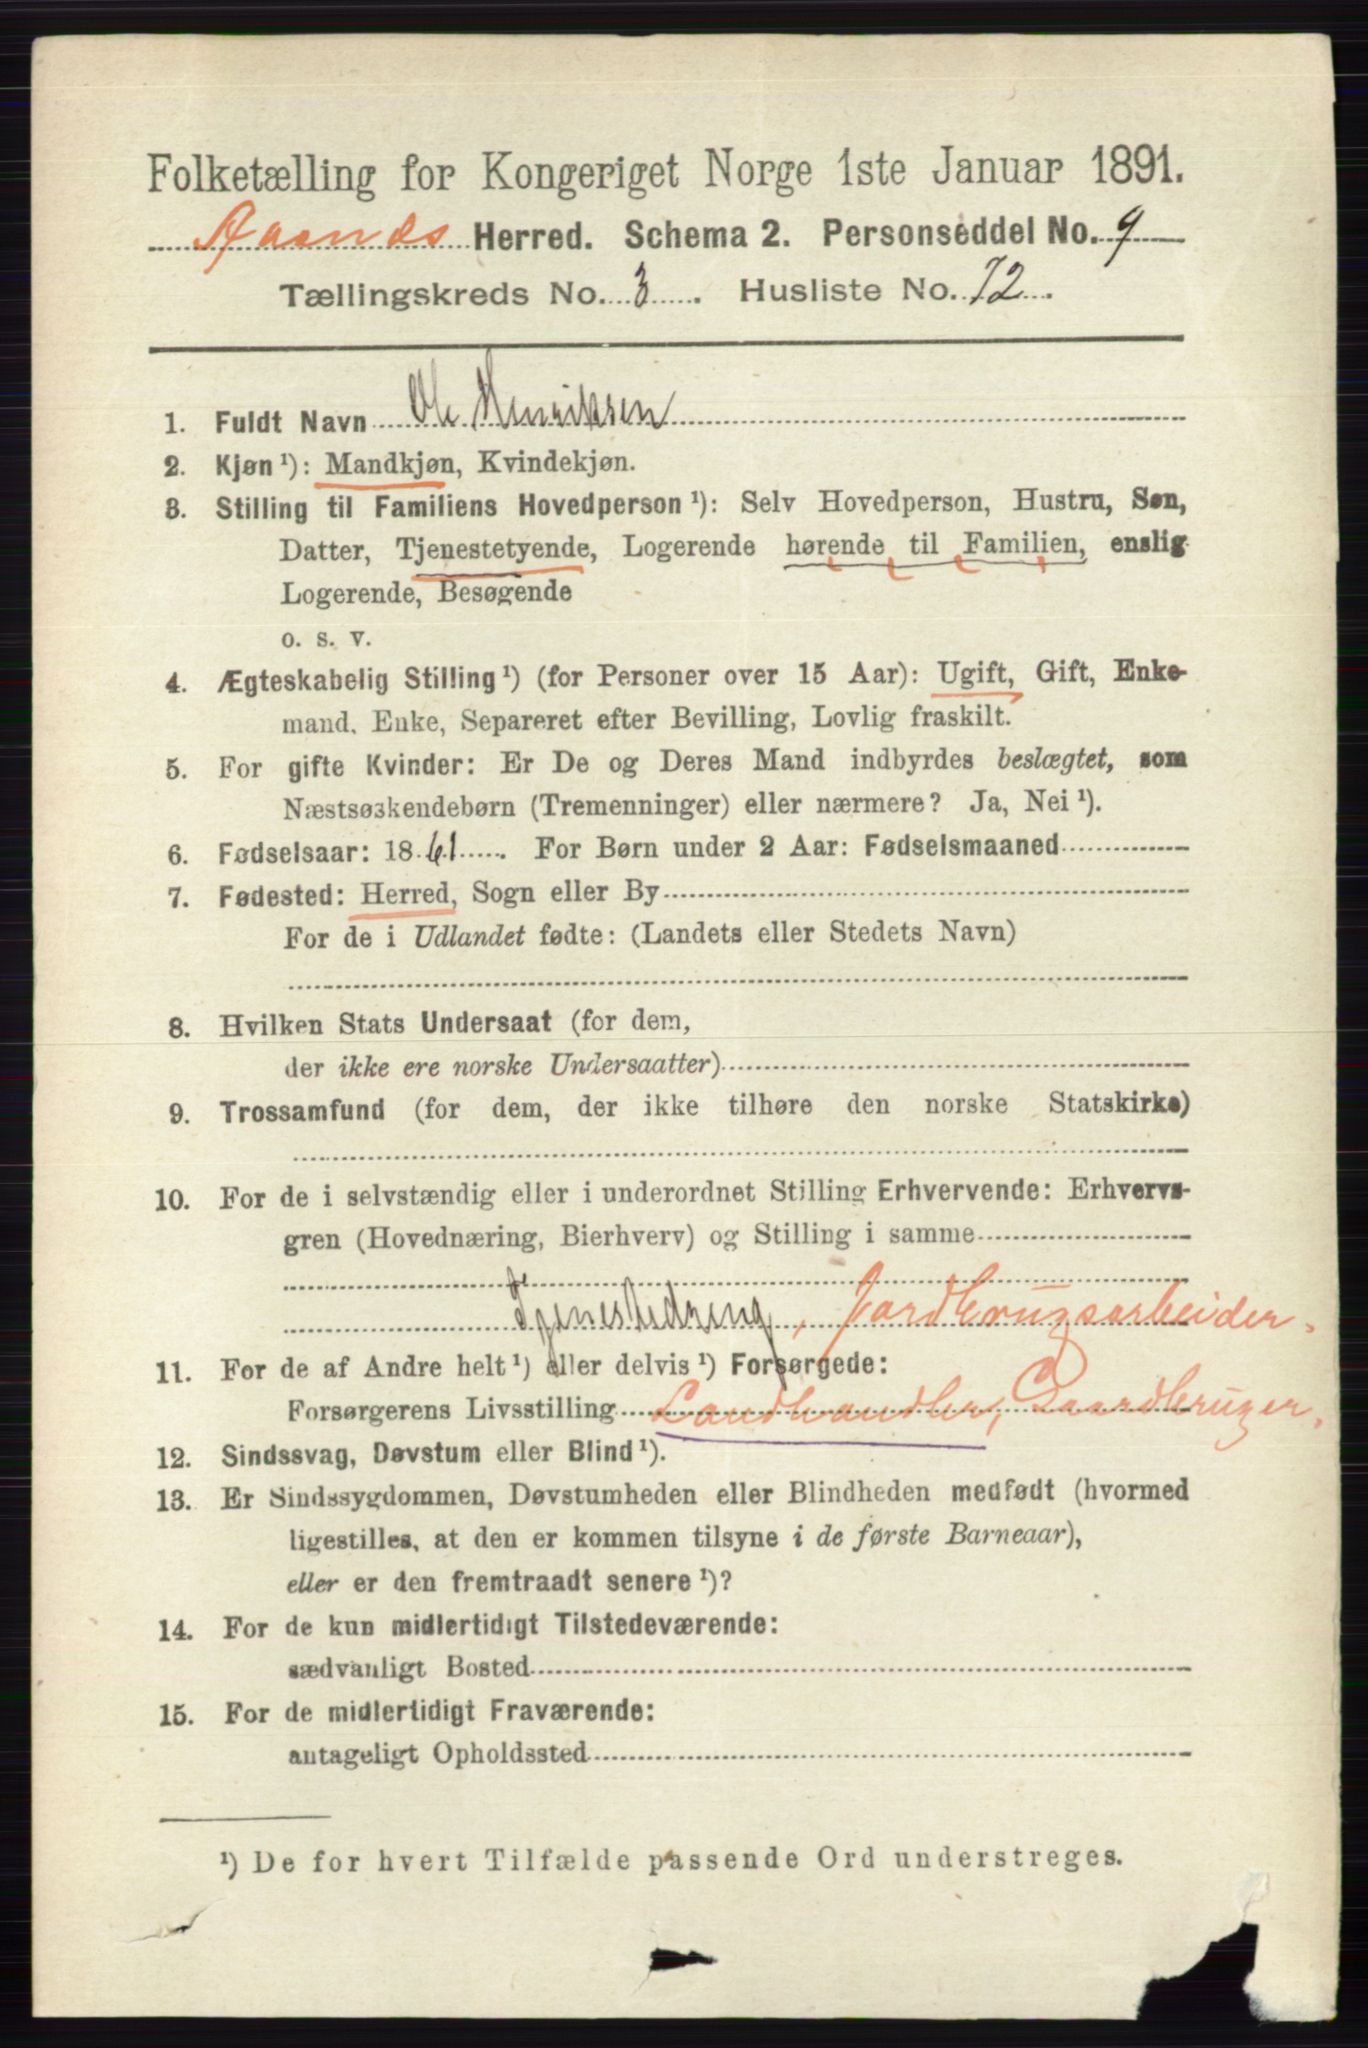 Folketælling for Kongeriget Norge 1ste Januar 1891.
Herred. Schema 2. Personseddel No. 9
Tællingskreds No. 3. Husliste No. 72.
1. Fuldt Navn Ole Henriksen
2. Kjøn ¹): Mandkjøn, Kvindekjøn.
3. Stilling til Familiens Hovedperson ¹): Selv Hovedperson, Hustru, Søn,
Datter, Tjenestetyende, Logerende hørende til Familien, enslig
Logerende, Besøgende
o. s. v.
4. Ægteskabelig Stilling ¹) (for Personer over 15 Aar): Ugift, Gift, Enke-
mand, Enke, Separeret efter Bevilling, Lovlig fraskilt.
5. For gifte Kvinder: Er De og Deres Mand indbyrdes beslægtet, som
Næstsøskendebørn (Tremenninger) eller nærmere? Ja, Nei ¹).
6. Fødselsaar: 1861. For Børn under 2 Aar: Fødselsmaaned
7. Fødested: Herred, Sogn eller By
For de i Udlandet fødte: (Landets eller Stedets Navn)
8. Hvilken Stats Undersaat (for dem,
der ikke ere norske Undersaatter)
9. Trossamfund (for dem, der ikke tilhøre den norske Statskirke)
10. For de i selvstændig eller i underordnet Stilling Erhvervende: Erhvervs-
gren (Hovednæring, Bierhverv) og Stilling i samme
Tjenestedreng, Jordbrugsarbeider.
11. For de af Andre helt ¹) eller delvis ¹) Forsørgede:
Forsørgerens Livsstilling Landhandler, Gaardbruger.
12. Sindssvag, Døvstum eller Blind ¹).
13. Er Sindssygdommen, Døvstumheden eller Blindheden medfødt (hvormed
ligestilles, at den er kommen tilsyne i de første Barneaar),
eller er den fremtraadt senere ¹)?
14. For de kun midlertidigt Tilstedeværende:
sædvanligt Bosted
15. For de midlertidigt Fraværende:
antageligt Opholdssted
¹) De for hvert Tilfælde passende Ord understreges.